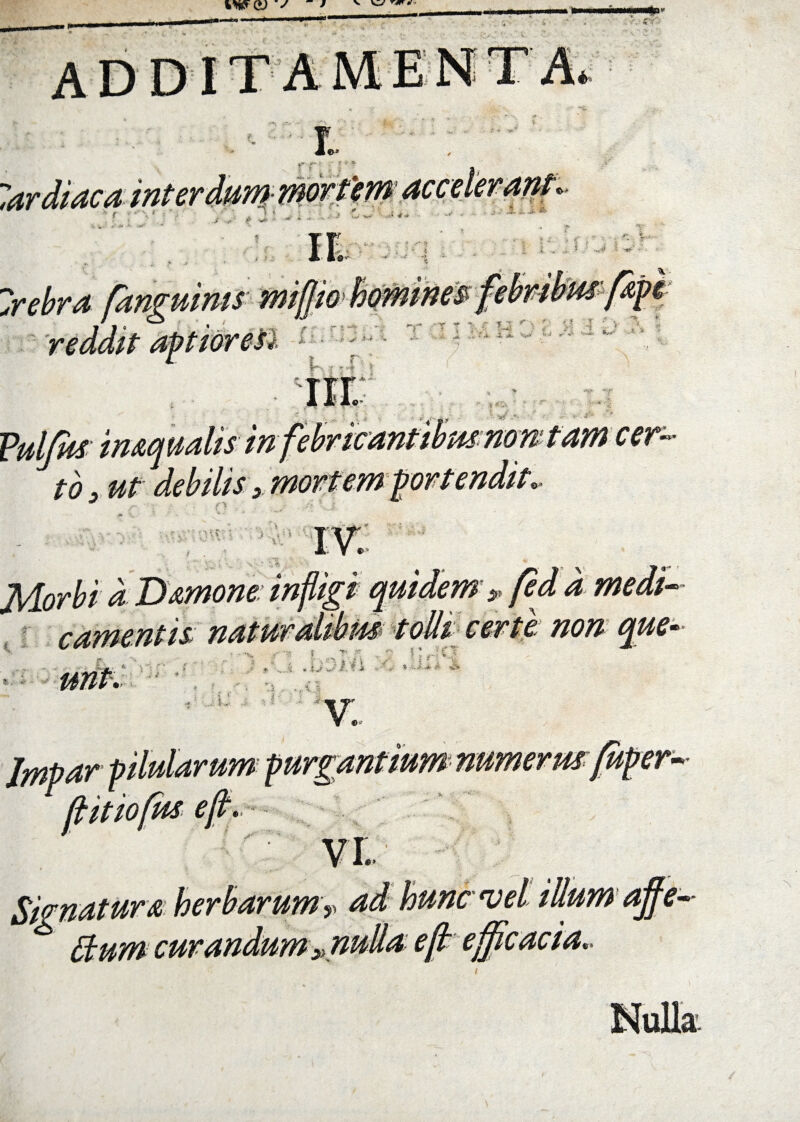 ADDITAMENTA.
I.
Cardiaca interdum mortem accelerant.
II.
Crebra sanguinis missio homines febribus sæpè
reddit aptiores.
III.
Pulsus inæqualis in febricantibus non tam cer-
tò, ut debilis, mortem portendit.
IV.
Morbi à Dæmone infligi quidem, sed à medi-
camentis naturalibus tolli certè non que-
unt.
V.
Impar pilularum purgantium numerus super-
stitiosus est.
VI.
Signaturæ herbarum, ad hunc vel illum affe-
ctum curandum, nulla est efficacia.
Nulla